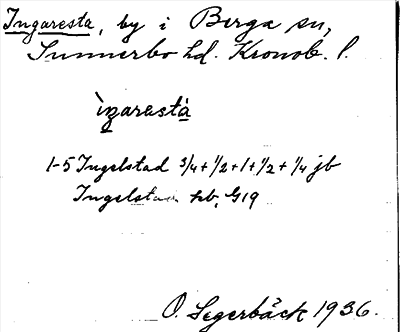 Ingaresta, by i Berga sn,
Sunnerbo hd. Kronob. l.
ìŋarestà
1-5 Ingelstad 3/4+1/2+1+1/2+1/4 jb
Ingelstad hb, G19
O. Segerbäck 1936.